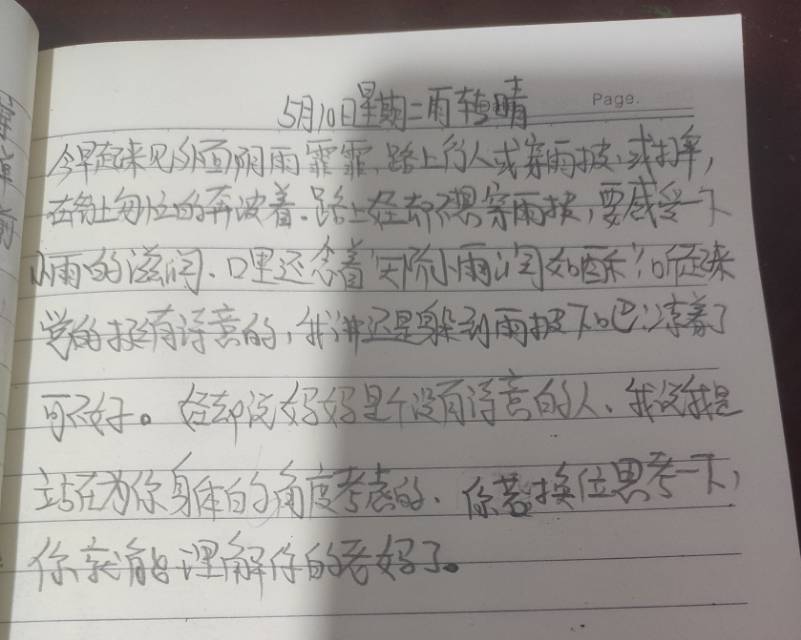 5月10日星期二雨转晴
Page.
今早起来见外面阴雨霏霏,路上行人或穿雨披,或打伞,
在街上匆忙的奔波着.路上娃却不想穿雨披,要感受一下
小雨的滋润.口里还念着"天阶小雨润如酥",听起来
觉的挺有诗意的,我讲还是躲到雨披下吧,凉着了
可不好。娃却说妈妈是个没有诗意的人.我说我是
站在为你身体的角度考虑的.你若换位思考一下,
你就能理解你的老妈了。